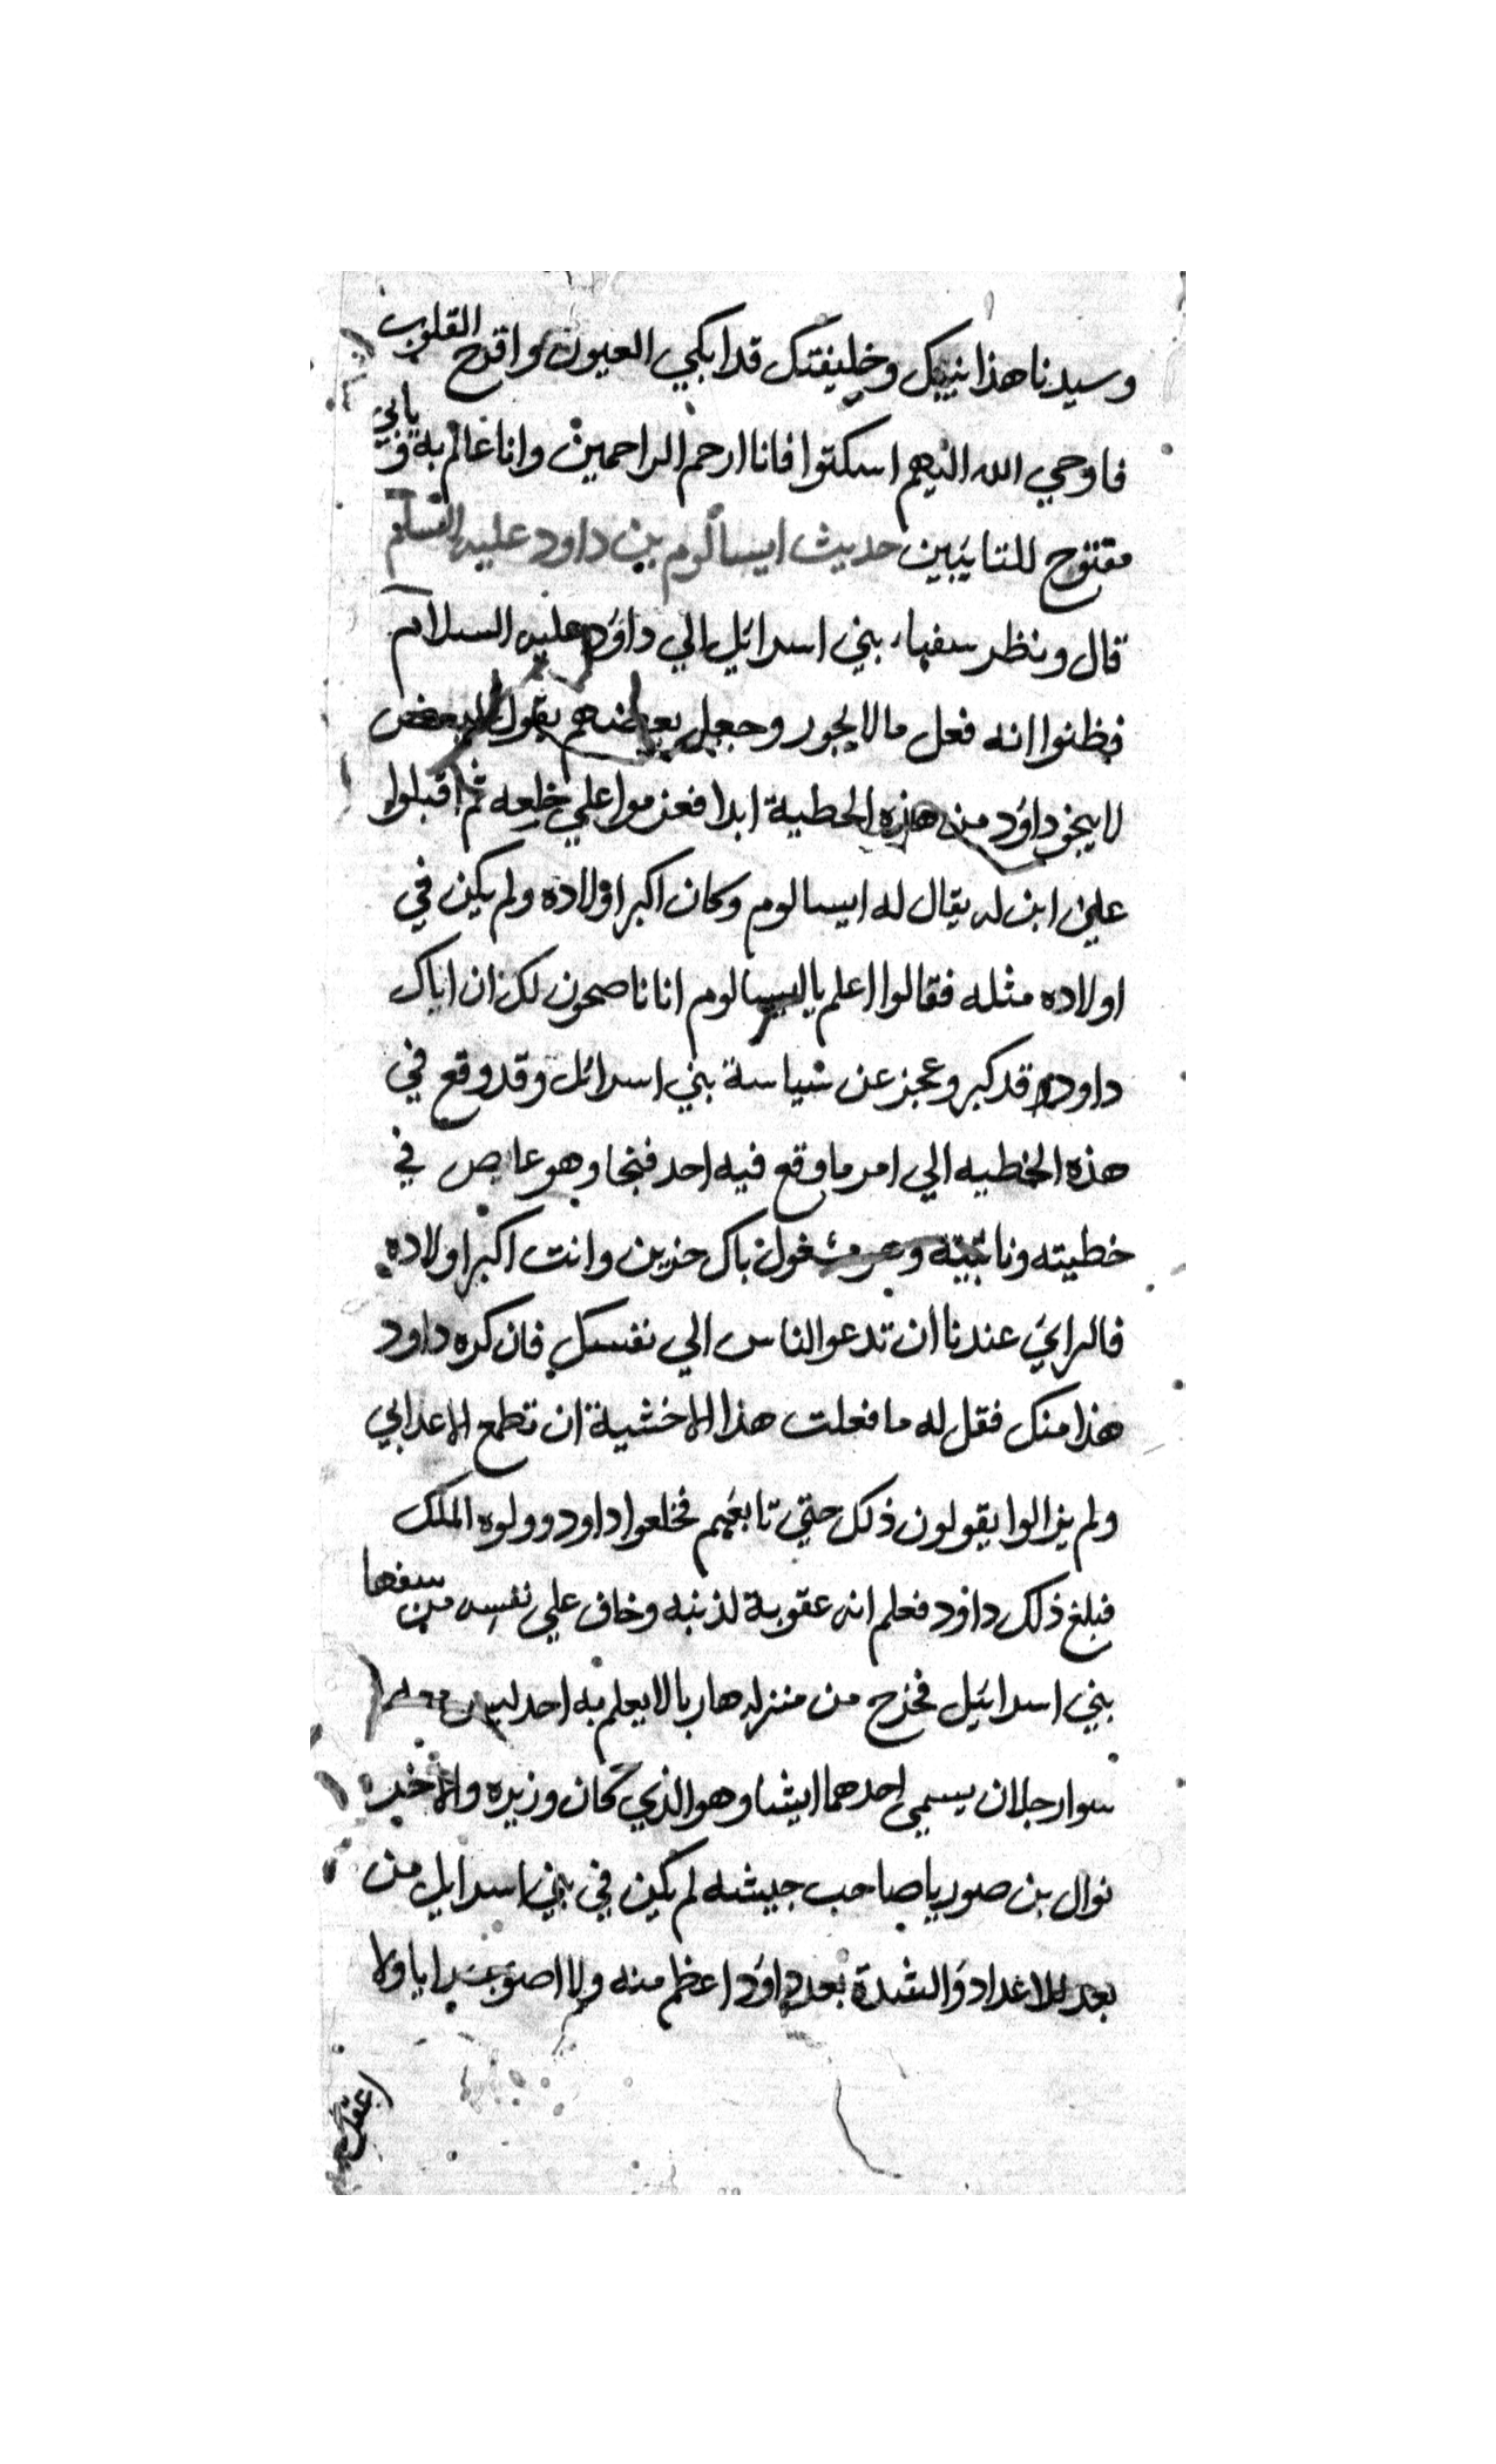 وسيدنا هذا نبيك وخليفتك قد ابكي العيون واقرح القلوب
فاوحي الله اليهم اسكتوا فانا ارحم الراحمين وانا عالم به و بابي
مفتوح للتايبين حديث ايسالوم بن داود عليه السلم
قال ونظر سفهاء بني اسرائيل الي داود عليه السلام
فظنوا انه فعل ما لا يجوز وجعل بعضهم يقول لبعض
لا ينجو داود من هذه الخطية ابدا فعزموا علي خلعه ثم اقبلوا
علي ابن له يقال له ايسالوم وكان اكبر اولاده ولم يكن في
اولاده مثله فقالوا اعلم يا ايسالوم انا ناصحون لك ان اباك
داود قد كبر وعجز عن سياسة بني اسرائل وقد وقع في
هذه الخطيه الي امر ما وقع فيه احد فنجا وهو عاص في
خطيته مشغول باك حزين وانت اكبر اولاده
فالراي عندنا ان تدعو الناس الي نفسك فان كره داود
هذا منك فقل له ما فعلت هذا الا خشية ان تطمع الاعدا بي
ولم يزالوا يقولون ذلك حتي تابعهم فخلعوا داود وولوه الملك
فبلغ ذلك داود فعلم انه عقوبة لذنبه وخاف علي نفسه من سفها
بني اسرائيل فخرج من منزله هاربا لا يعلم به احد ليس معه
سوا رجلان يسمي احدهما ايشا وهو الذي كان وزيره والاخر
نوال بن صوريا صاحب جيشه لم يكن في بني اسرايل من
بعد الاعداد والشدة بعد داود اعظم منه ولا اصوب رايا ولا